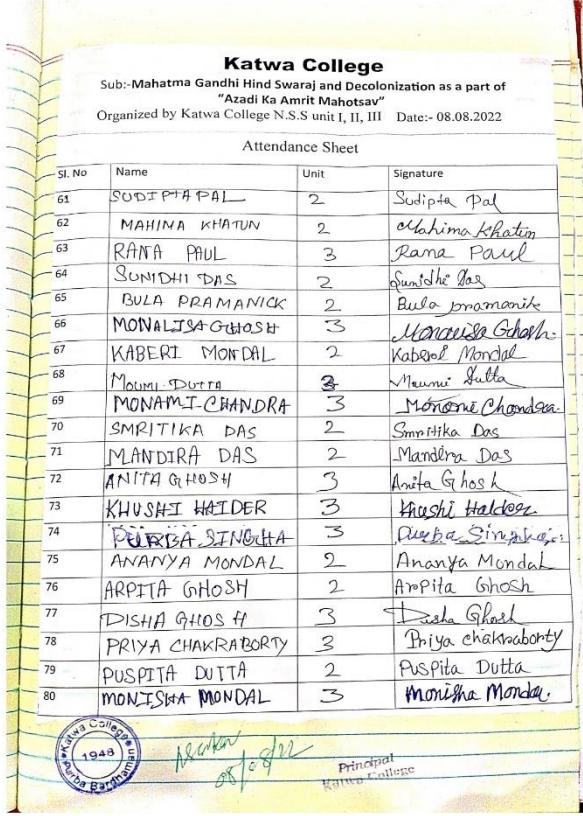 Katwa College
Sub:-Mahatma Gandhi Hind Swaraj and Decolonization as a part of
“Azadi Ka Amrit Mahotsav”
Organized by Katwa College N.S.S unit I, II, III Date:- 08.08.2022
Attendance Sheet
Sl. No Name Unit Signature
61 SUDIPTA PAL 2 Sudipta Pal
62 MAHIMA KHATUN 2 Mahima Khatun
63 RANA PAUL 3 Rana Paul
64 SUNIDHI DAS 2 Sunidhi Das
65 BULA PRAMANICK 2 Bula pramanik
66 MONALISA GHOSH 3 Monalisa Ghosh.
67 KABERI MONDAL 2 Kaberi Mondal
68 MOUMI DUTTA Moumi Dutta
69 MONAMI CHANDRA 3 Monami Chandra.
70 SMRITIKA DAS 2 Smritika Das
71 MANDIRA DAS 2 Mandira Das
72 ANITA GHOSH 3 Anita Ghosh
73 KHUSHI HALDER 3 Khushi Halder
74 PURBA SINGHA 3 Purba
75 ANANYA MONDAL 2 Ananya Mondal
76 ARPITA GHOSH 2 Arpita Ghosh
77 DISHA GHOSH 3 Disha Ghosh
78 PRIYA CHAKRABORTY 3 Priya chakraborty
79 PUSPITA DUTTA 2 Puspita Dutta
80 MONISHA MONDAL 3 Monisha Mondal.
Katwa College
1948
Purba Bardhaman
08/08/22
Principal
Katwa College